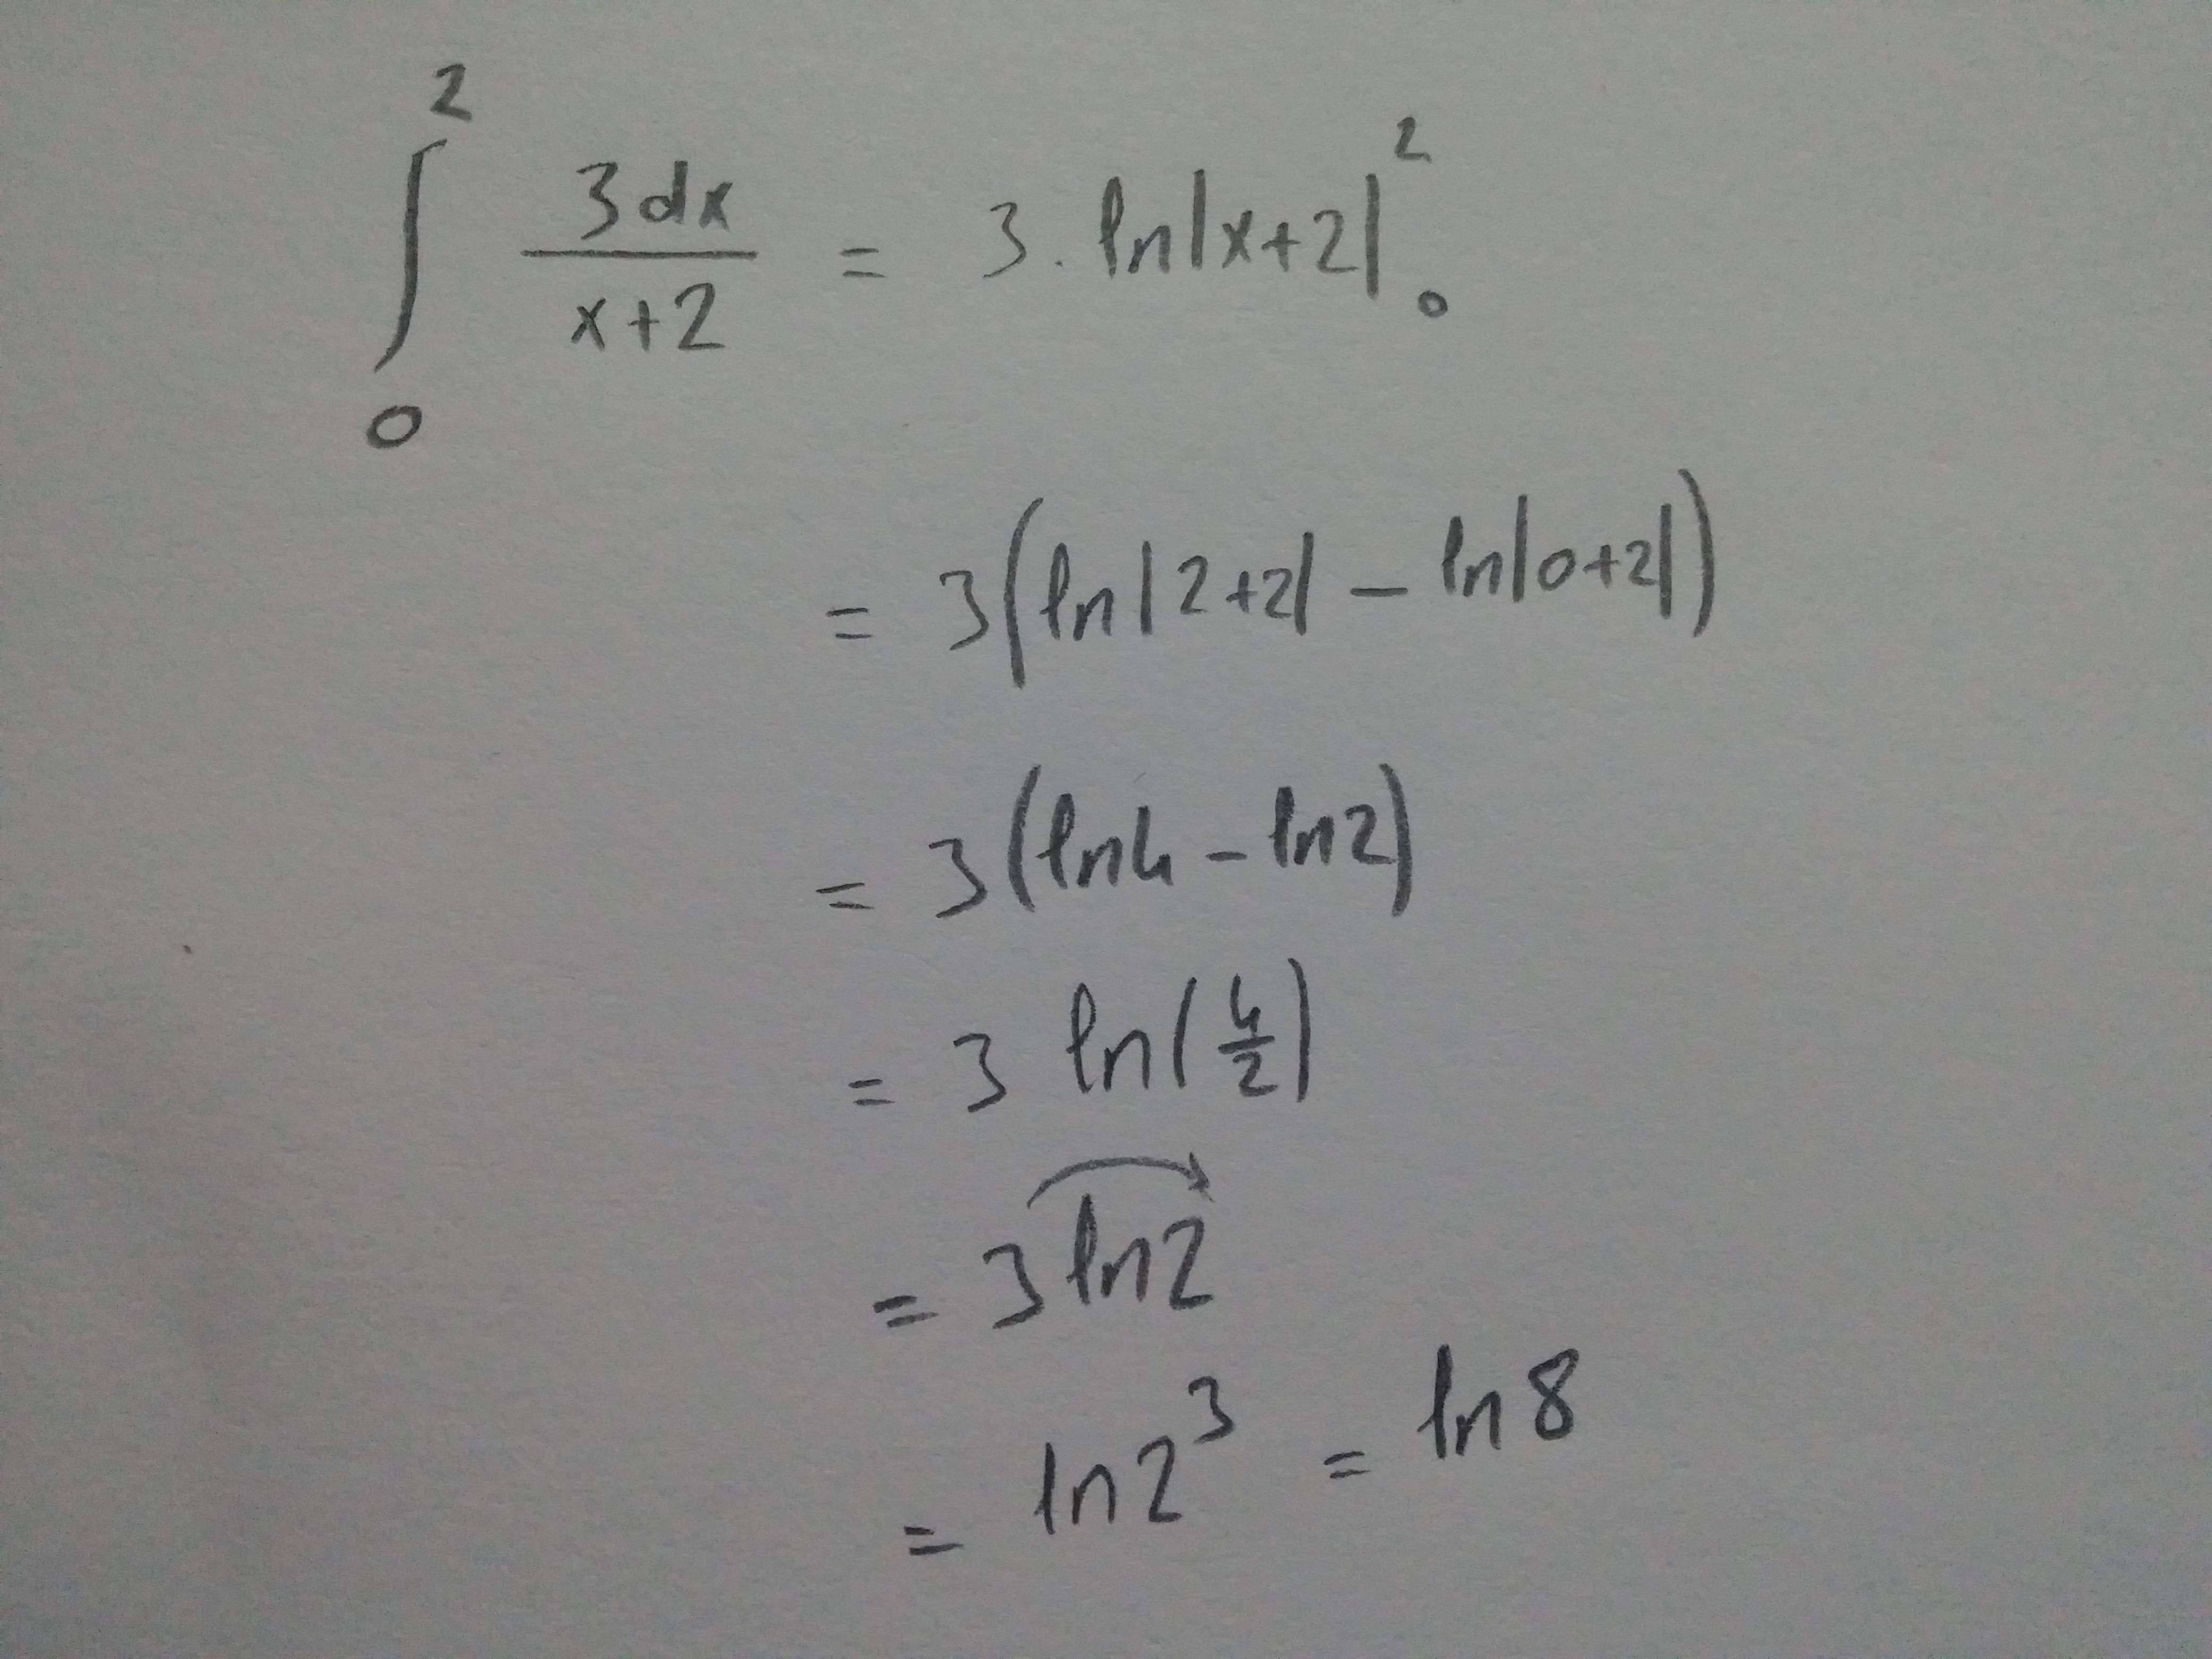 ∫₀² 3dx/(x+2) = 3·ln|x+2| |₀²
= 3(ln|2+2| − ln|0+2|)
= 3(ln4 − ln2)
= 3 ln(4/2)
= 3 ln2
= ln2³ = ln8